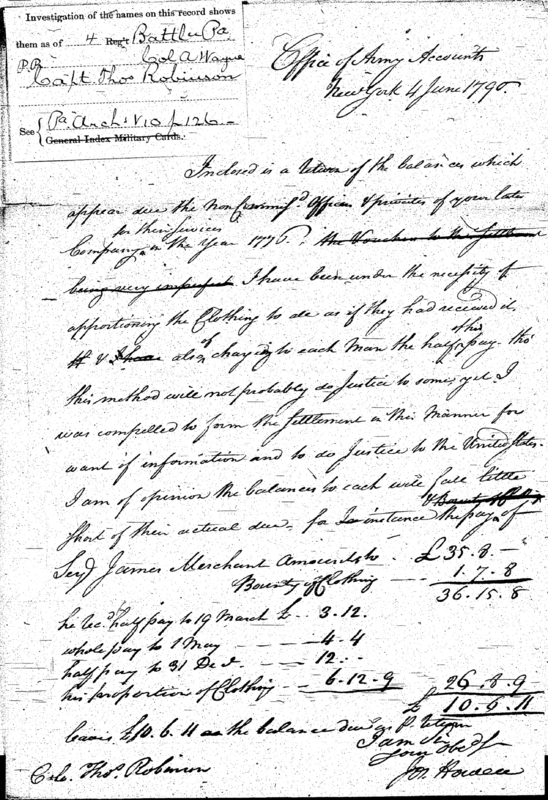 Investigation of the names on this record shows
them as of 4 Reg't Battln Pa.
P.R. Col A Wayne
Capt. Thos Robinson
See { Pa. Arch. V 10 p 126 —
General Index Military Cards.
Office of Army Accounts
New York 4 June 1790.
Inclosed is a return of the balances which
appear due the non Commiss'd Officers & privates of your late
for their Services
Company in the Year 1776. the Vouchers to the Settlement
being very imperfect I have been under the necessity of
apportioning the Clothing to de as if they had received it,
& I have also of charging to each Man the half of his pay. tho'
this method will not probably do Justice to some, yet I
was compelled to form the Settlement in this Manner for
want of information and to do Justice to the United States.
I am of opinion the balances to each will fall little
short of their actual due. for instance the pay & Bounty of Clothing of
Serj James Merchant Amounts to £ 35.8.—
Bounty of Clothing 1.7.8
36.15.8
he rec'd half pay to 19 March £ 3.12.
whole pay to 1 May 4.4
half pay to 31 Dec. 12.-
his proportion of Clothing 6.12.9 26.8.9
£ 10.6.11
leaves £10.6.11 as the balance due as p. return
I am Sir
Your Obed
Jos. Howell
Colo. Thos. Robinson